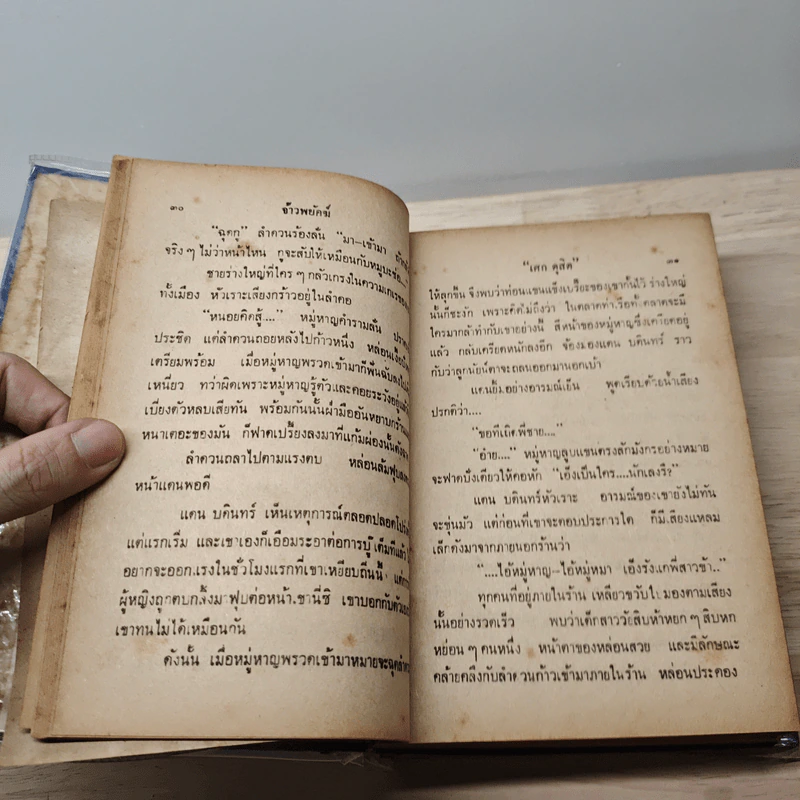 ๓๐ จ้าวพยัคฆ์
"ฉุดกู" ลำดวนร้องลั่น "มา—เข้ามา
จริง ๆ ไม่ว่าหน้าไหน กูจะสับให้เหมือนกับหมูบะช่อ...."
ชายร่างใหญ่ที่ใคร ๆ กลัวเกรงในความเกเร
ทั้งเมือง หัวเราะเสียงกร้าวอยู่ในลำคอ
"หนอยคิดสู้...." หมู่หาญคำรามลั่น
ประชิด แต่ลำดวนถอยหลังไปก้าวหนึ่ง หล่อน
เตรียมพร้อม เมื่อหมู่หาญพรวดเข้ามาก็ฟันฉับลง
เหนี่ยว ทว่าผิดเพราะหมู่หาญรู้ตัวและคอยระวังอยู่แล้ว
เบี่ยงตัวหลบเสียทัน พร้อมกันนั้นฝ่ามืออันหยาบกร้าน
หนาเตอะของมัน ก็ฟาดเปรี้ยงลงมาที่แก้มผ่องนั้น
ลำดวนถลาไปตามแรงตบ หล่อนล้มฟุบลง
หน้าแดนพอดี
แดน บดินทร์ เห็นเหตุการณ์ตลอดปลอดโปร่ง
แต่แรกเริ่ม และเขาเองก็เอือมระอาต่อการบู๊เต็มทีแล้ว
อยากจะออกแรงในชั่วโมงแรกที่เขาเหยียบถิ่นนี้ แต่
ผู้หญิงถูกตบกลิ้งมาฟุบต่อหน้าเขานี่ซิ เขาบอกกับตัวเอง
เขาทนไม่ได้เหมือนกัน
ดังนั้น เมื่อหมู่หาญพรวดเข้ามาหมายจะฉุดลำดวน
"เศก ดุสิต" ๓๑
ให้ลุกขึ้น จึงพบว่าท่อนแขนแข็งเปรี๊ยะของเขากั้นไว้ ร่างใหญ่
นั้นก็ชะงัก เพราะคิดไม่ถึงว่า ในตลาดท่าเรือทั้งตลาดจะมี
ใครมากล้าทำกับเขาอย่างนี้ สีหน้าของหมู่หาญซึ่งเครียดอยู่
แล้ว กลับเครียดหนักลงอีก จ้องมองแดน บดินทร์ ราว
กับว่าลูกนัยน์ตาจะถลนออกมานอกเบ้า
แดนยิ้มอย่างอารมณ์เย็น พูดเรียบด้วยน้ำเสียง
ปรกติว่า....
"ขอทีเถิดพี่ชาย...."
"อ้าย...." หมู่หาญลูบแขนตรงสักมังกรอย่างหมาย
จะฟาดปั่งเดียวให้คอหัก "เอ็งเป็นใคร....นักเลงรึ?"
แดน บดินทร์หัวเราะ อารมณ์ของเขายังไม่ทัน
จะขุ่นมัว แต่ก่อนที่เขาจะตอบประการใด ก็มีเสียงแหลม
เล็กดังมาจากภายนอกร้านว่า
"....ไอ้หมู่หาญ--ไอ้หมู่หมา เอ็งรังแกพี่สาวข้า.."
ทุกคนที่อยู่ภายในร้าน เหลียวขวับไปมองตามเสียง
นั้นอย่างรวดเร็ว พบว่าเด็กสาววัยสิบห้าหยก ๆ สิบหก
หย่อน ๆ คนหนึ่ง หน้าตาของหล่อนสวย และมีลักษณะ
คล้ายคลึงกับลำดวนก้าวเข้ามาภายในร้าน หล่อนประคอง